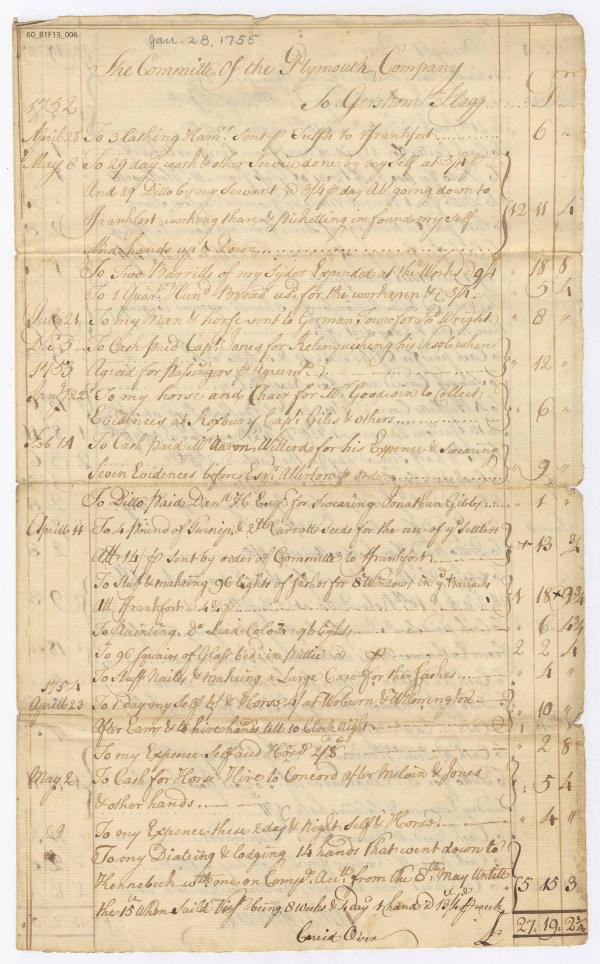 60_B1F13_006
Jan. 28, 1755
The Committe of the Plymouth Company
To Gershom Flagg
1752
April 28 To 3 lathing Ham.rs Sent to Frankfort 6 "
May 8 To 29 days work & other Service done by my Self at
And 29 Ditto by my Servant @ 3/4 p day All going down to
Frankfort working thare & Picketting in found my Self
And hands up & Down 12 11 4
To Two Barrills of my Syder Expended at the Works @ 9/4 " 18 8
To 1 Quar.r Hun.d Bread us.d for the workemen 5/4 " 5 4
21 To my Man & horse sent to German Town for Wright " 8 "
Dec. 3 To Cash paid Cap.t Jones for Relenqueshing his when
1753 Agreed for Passingers p Agreem.t " 12 "
Jan.y 22 To my horse and Chaer for M.r Goodwin to Collect
Evidences at Roxbury Cap.t Giles & others " 6 "
Feb 14 To Cash paid M.r Aaron Willerd for his Expence & Swearing
Seven Evidences before Esq.r Allerton p order " 9 "
To Ditto Paid Esq.r for Swearing Jonathan Gibbs " 1 "
April 4 To 4 Pound of Turnip & 2 lb Carrott Seeds for the use of y.e Settlers
Att 14/ p Sent by order of Committe to Frankfort 13
To Stuff & makeing 96 lights of Sashes for 8 Windows in y.e Barracks
Att Frankfort @ 1 18 9 3/4
To Painting D.o Lead Colour 96 lights " 6
To 96 Squairs of Glass in Puttie 2 2 4
To Stuff Nailes & makeing a Large Case for the Sashes " 4 "
1754
April 23 To 1 day my Self & Horse at Woburn & Wilmington
After Eam.s & to hire hands till 10 Clock Night " 10 "
To my Expence Self and Hors 2/8 " 2 8
May 2 To Cash for Horse Hire to Concord after Melvin & Jones
& other hands " 5 4
3 To my Expence these 2 day & Night Self & Horse " 4 "
To my Diateing & lodging 14 hands that went down to
Kennebeck w.th me on Comp.s Acc.tt from the 8.th May Untill
the 15 When Saild being 8 Weeks & 4 day 1 hand @ 13/4 p week 5 15 3
27. 19. 2 3/4
Caried Over